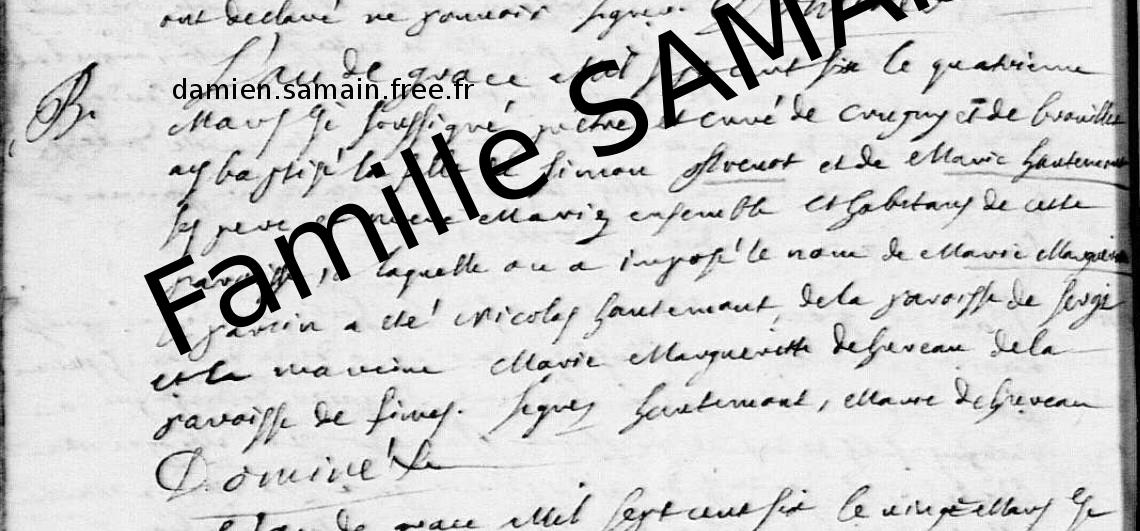 ont declaré ne pouvoir signer.
L'an de grace mil sept cent six le quatrieme
B.
damien.samain.free.fr
Famille SAMAI
Mars Je soussigné prêtre et curé de Crugny et de brouillet
ay baptisé la fille de Simon et de Marie hautemont
ses pere et mere Mariez ensemble et habitans de cette
paroisse, a laquelle on a imposé le nom de Marie Marguerite
le parain a eté Nicolas hautemont, de la paroisse de
et la maraine Marie Margueritte de la
paroisse de fimes. Signez hautemont, Marie
Dominé
L'an de grace Mil Sept cent six le vingt Mars Je